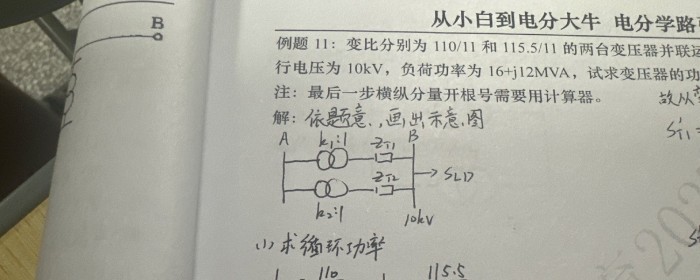 B
从小白到电分大牛 电分学路
例题 11：变比分别为 110/11 和 115.5/11 的两台变压器并联运
行电压为 10kV，负荷功率为 16+j12MVA，试求变压器的功
注：最后一步横纵分量开根号需要用计算器。
故从
解：依题意，画出示意图
A k₁:1 Z_T1 B
S_LD
Z_T2
k₂:1 10kV
(1) 求循环功率
110 115.5